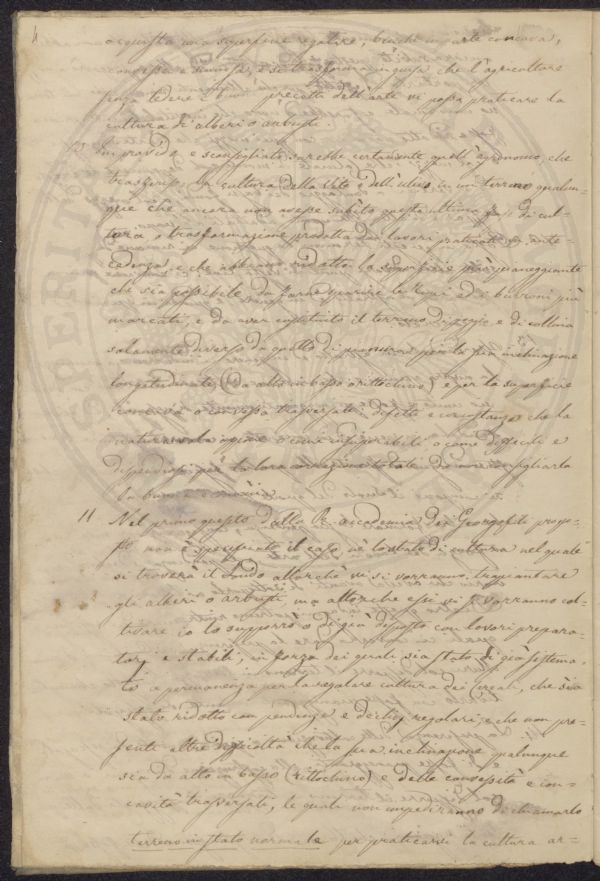 4
acquista una superficie regolare, benchè in parte concava,
convessa e scoscesa, e si trasforma in guisa che l'agricoltore
senza ledere i buoni precetti dell'arte vi possa praticare la
cultura di alberi o arbusti.
Improvido e sconsigliato sarebbe certamente quell'agronomo, che
trasferisse la cultura della Vite e dell'ulivo in un terreno qualun-
que che ancora non avesse subito questa ultima fase di cul-
tura, o trasformazione prodotta dai lavori praticati in ante-
cedenza, e che abbiano ridotto la superficie più pianeggiante
che sia possibile da fare sparire le rupi ed i burroni più
marcati, e da aver costituito il terreno di poggio e di collina
solamente diverso da quello di pianura per la sua inclinazione
longitudinale (da alto in basso o rittochino) e per la superficie
concava o convessa trasversale: difetti e circostanze che la
natura vi oppone o come impossibili o come difficili e
dispendiosi per la loro correzione totale da non consigliarla
la buona economia
11 Nel primo quesito dalla R. accademia dei Georgofili propo-
sto non è specificato il caso, nè lo stato di cultura nel quale
si troverà il fondo allorchè vi si vorranno trapiantare
gli alberi o arbusti ma allorchè essi vi si vorranno col-
tivare io lo supporrò o di già disposto con lavori prepara-
torj e stabili, in forza dei quali sia stato di già sistema-
to a permanenza per la regolare cultura dei Cereali, che sia
stato ridotto con pendenze e declivj regolari; e che non pre-
senti altre difficoltà che la sua inclinazione qualunque
sia da alto in basso (rittochino) e delle convessità e con-
cavità trasversali, le quali non impediranno di chiamarlo
terreno in stato normale per praticarvi la cultura ar-